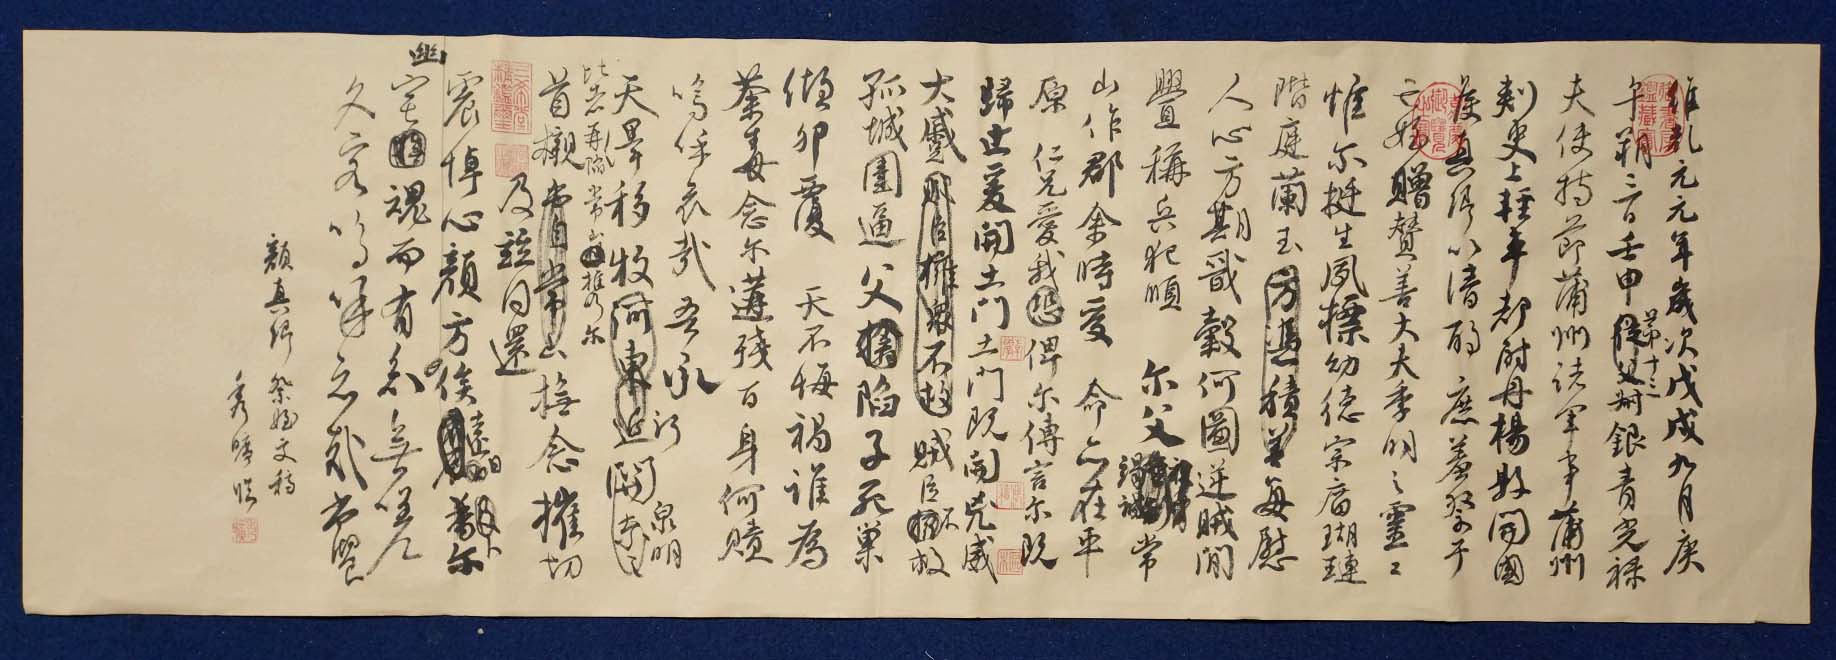 維乾元元年歲次戊戌九月庚
午朔三日壬申第十三從父叔銀青光祿
夫使持節蒲州諸軍事蒲州
刺史上輕車都尉丹楊縣開國
侯真卿以清酌庶羞祭于
亡姪贈贊善大夫季明之靈
惟爾挺生夙標幼德宗廟瑚璉
階庭蘭玉方憑積善每慰
人心方期戩穀何圖逆賊閒
釁稱兵犯順爾父竭誠常
山作郡余時受命亦在平
原仁兄愛我恐俾爾傳言爾既
歸止爰開土門土門既開兇威
大蹙賊臣擁衆不救賊臣不救
孤城圍逼父陷子死巢
傾卵覆天不悔禍誰為
荼毒念爾遘殘百身何贖
嗚呼哀哉吾承
天澤移牧河東近河關泉明
比者再陷常山攜爾
首櫬常山及茲同還撫念摧切
震悼心顏方俟遠日卜爾
幽宅魂而有知無嗟
久客嗚呼哀哉尚饗
顏真卿 祭姪文稿